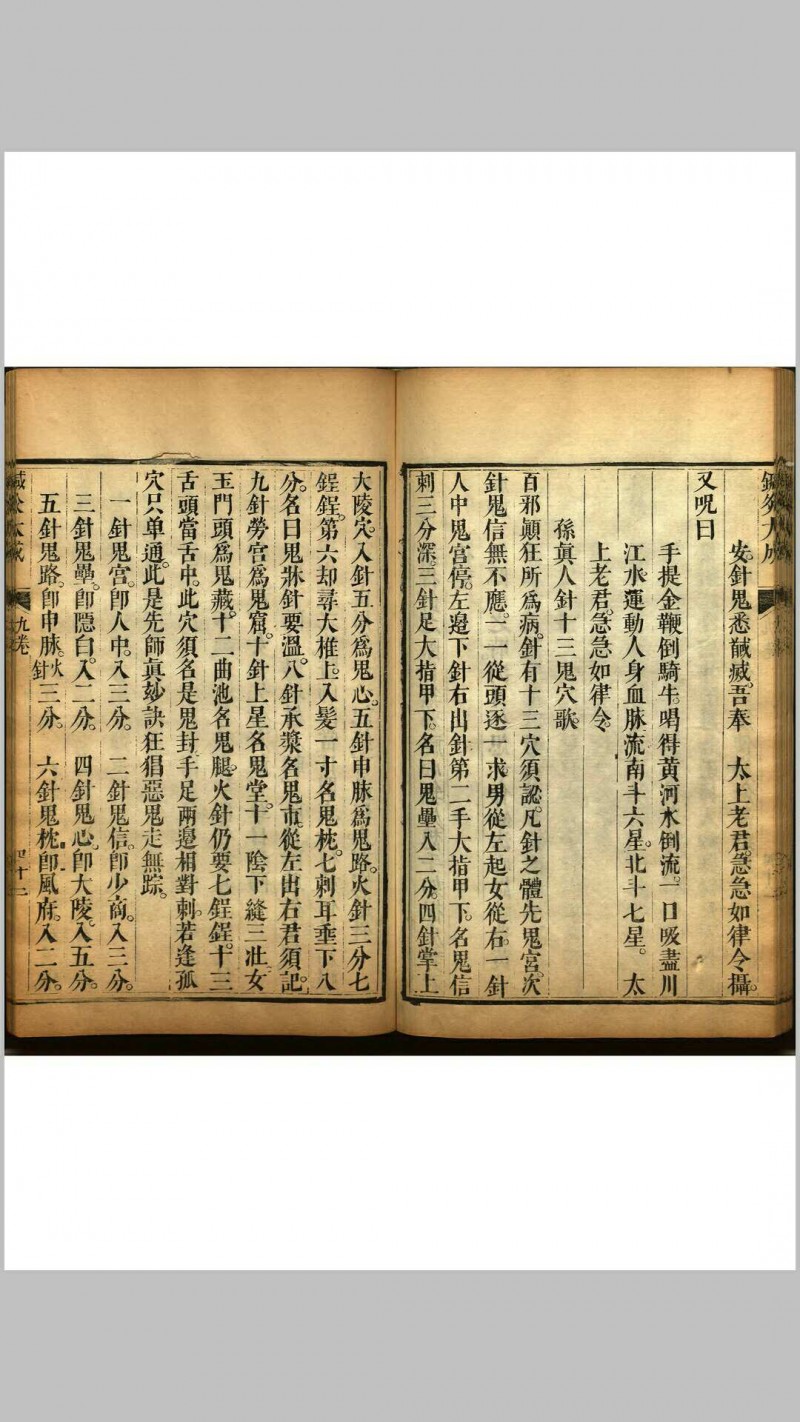 安針鬼悉馘滅。吾奉 太上老君。急急如律令攝。
又呪曰
手提金鞭倒騎牛。喝得黃河水倒流。一口吸盡川
江水。運動人身血脉流。南斗六星。北斗七星。 太
上老君。急急如律令。
孫真人針十三鬼穴歌
百邪顛狂所爲病。針有十三穴須認。凡針之體先鬼宮。次
針鬼信無不應。一一從頭逐一求。男從左起女從右。一針
人中鬼宮停。左邉下針右出針。第二手大指甲下。名鬼信
刺三分深。三針足大指甲下。名曰鬼壘入二分。四針掌上
大陵穴。入針五分爲鬼心。五針申脉爲鬼路。火針三分七
鋥鋥。第六却尋大椎上。入髮一寸名鬼枕。七刺耳垂下八
分。名曰鬼牀針要溫。八針承漿名鬼市。從左出右君須記。
九針勞宮爲鬼窟。十針上星名鬼堂。十一陰下縫三壯。女
玉門頭爲鬼藏。十二曲池名鬼腿。火針仍要七鋥鋥。十三
舌頭當舌中。此穴須名是鬼封。手足兩邉相對刺。若逢孤
穴只单通。此是先師真玅訣。狂猖惡鬼走無踪。
一針鬼宮。卽人中。入三分。 二針鬼信。卽少商。入三分。
三針鬼壘。卽隱白。入二分。 四針鬼心。卽大陵。入五分。
五針鬼路。卽申脉。火針三分。 六針鬼枕。卽風府。入二分。
九卷